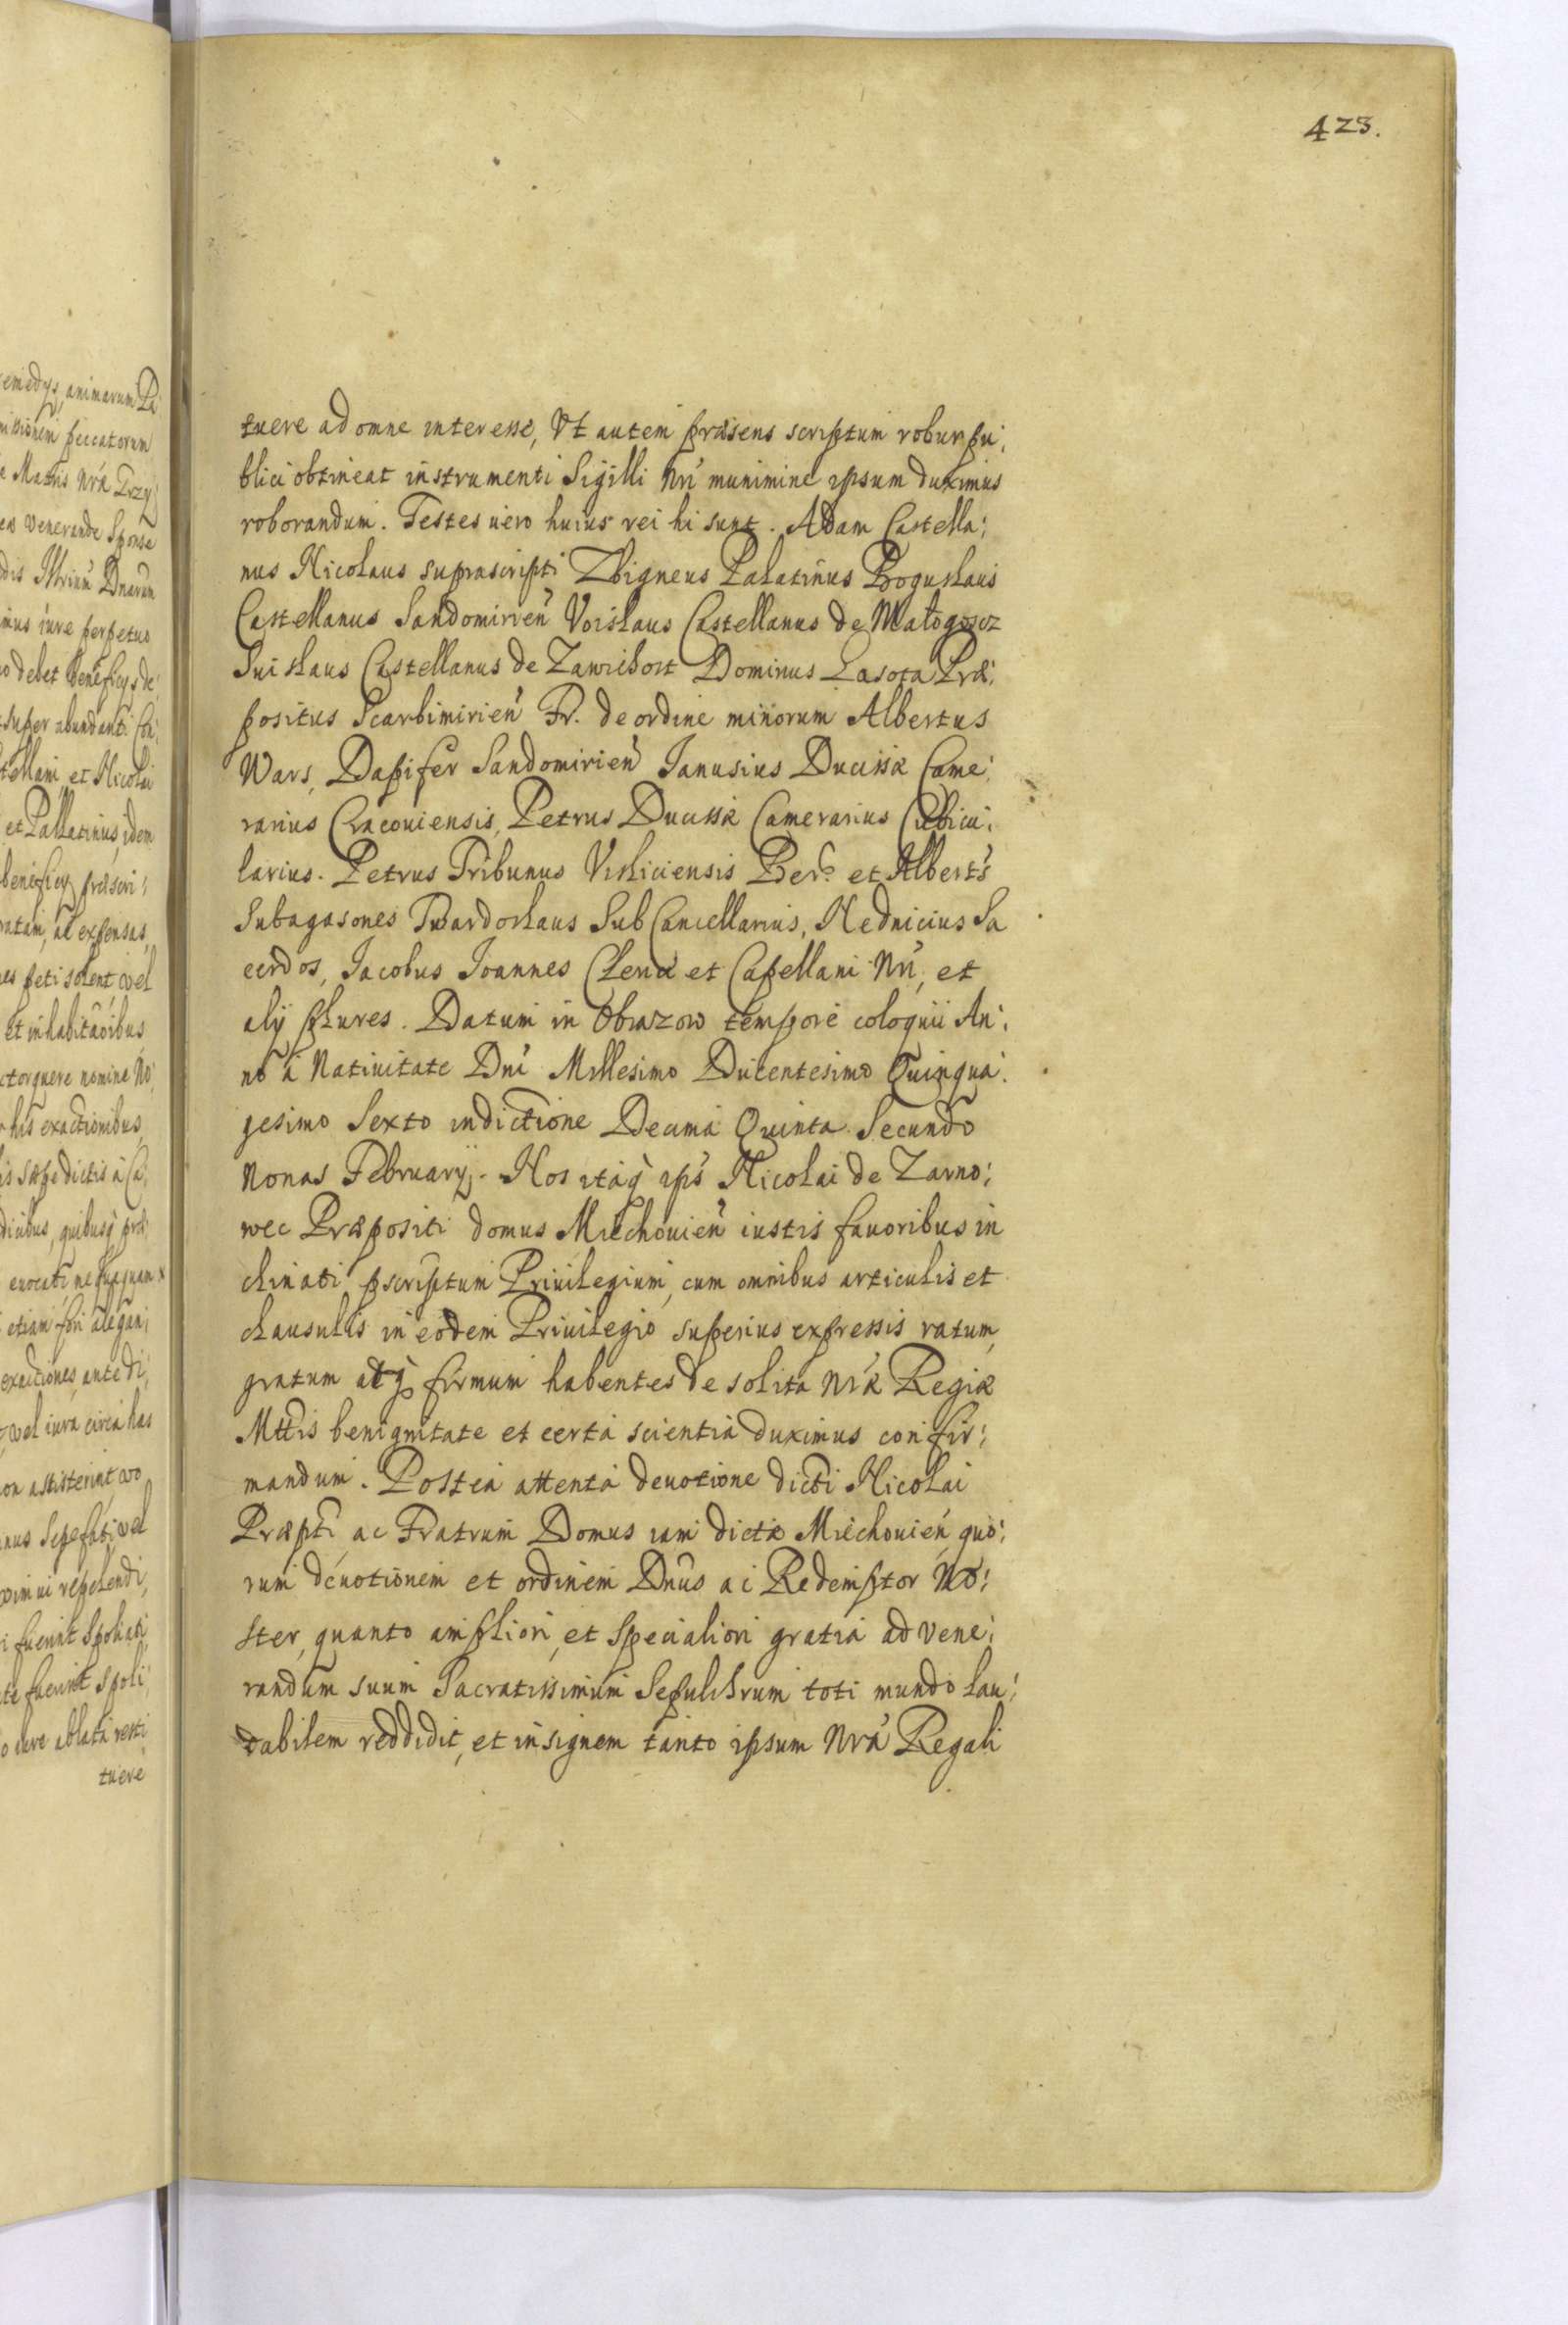 423.
tuere ad omne interesse, Vt autem præsens scriptum robur pu:
blici obtineat instrumenti Sigilli Nri munimine ipsum duximus
roborandum. Testes uero huius rei hi sunt. Adam Castella:
nus Nicolaus suprascripti Zbigneus Palatinus Boguslaus
Castellanus Sandomirien̄ Voislaus Castellanus de Małogoscz
Suislaus Castellanus de Zawichost Dominus Lasota Præ:
positus Scarbimirien̄ Fr. de ordine minorum Albertus
Wars, Dapifer Sandomirien̄ Ianusius Ducissæ Came:
rarius Cracouiensis, Petrus Ducissæ Camerarius Cubicu:
larius. Petrus Tribunus Visliciensis Ber. et Alberts
Subagasones Twardoslaus SubCancellarius, Hednicius Sa
cerdos, Iacobus Ioannes Clerici et Capellani Nri, et
alij plures. Datum in Obrazow tempore coloquii An:
no à Natiuitate Dni Millesimo Ducentesimo Quinqua:
gesimo Sexto indictione Decima Quinta Secundo
Nonas February. Nos itaq ips Nicolai de Zarno:
wec Præpositi domus Miechouien̄ iustis fauoribus in
clinati pscriptum Priuilegium, cum omnibus articulis et
clausulis in eodem Priuilegio superius expressis ratum,
gratum atq firmum habentes de solita Nræ Regiæ
Mttis benignitate et certa scientia duximus confir:
mandum. Postea attenta deuotione dicti Nicolai
Præpti, ac Fratrum Domus iam dictæ Miechouien, quo:
rum deuotionem et ordinem Dnus ac Redemptor No:
ster, quanto ampliori, et speciali​ori gratia ad vene:
randum suum Sacratissimum Sepulchrum toti mundo lau:
dabilem reddidit, et insignem tanto ipsum Nra Regali
tuere